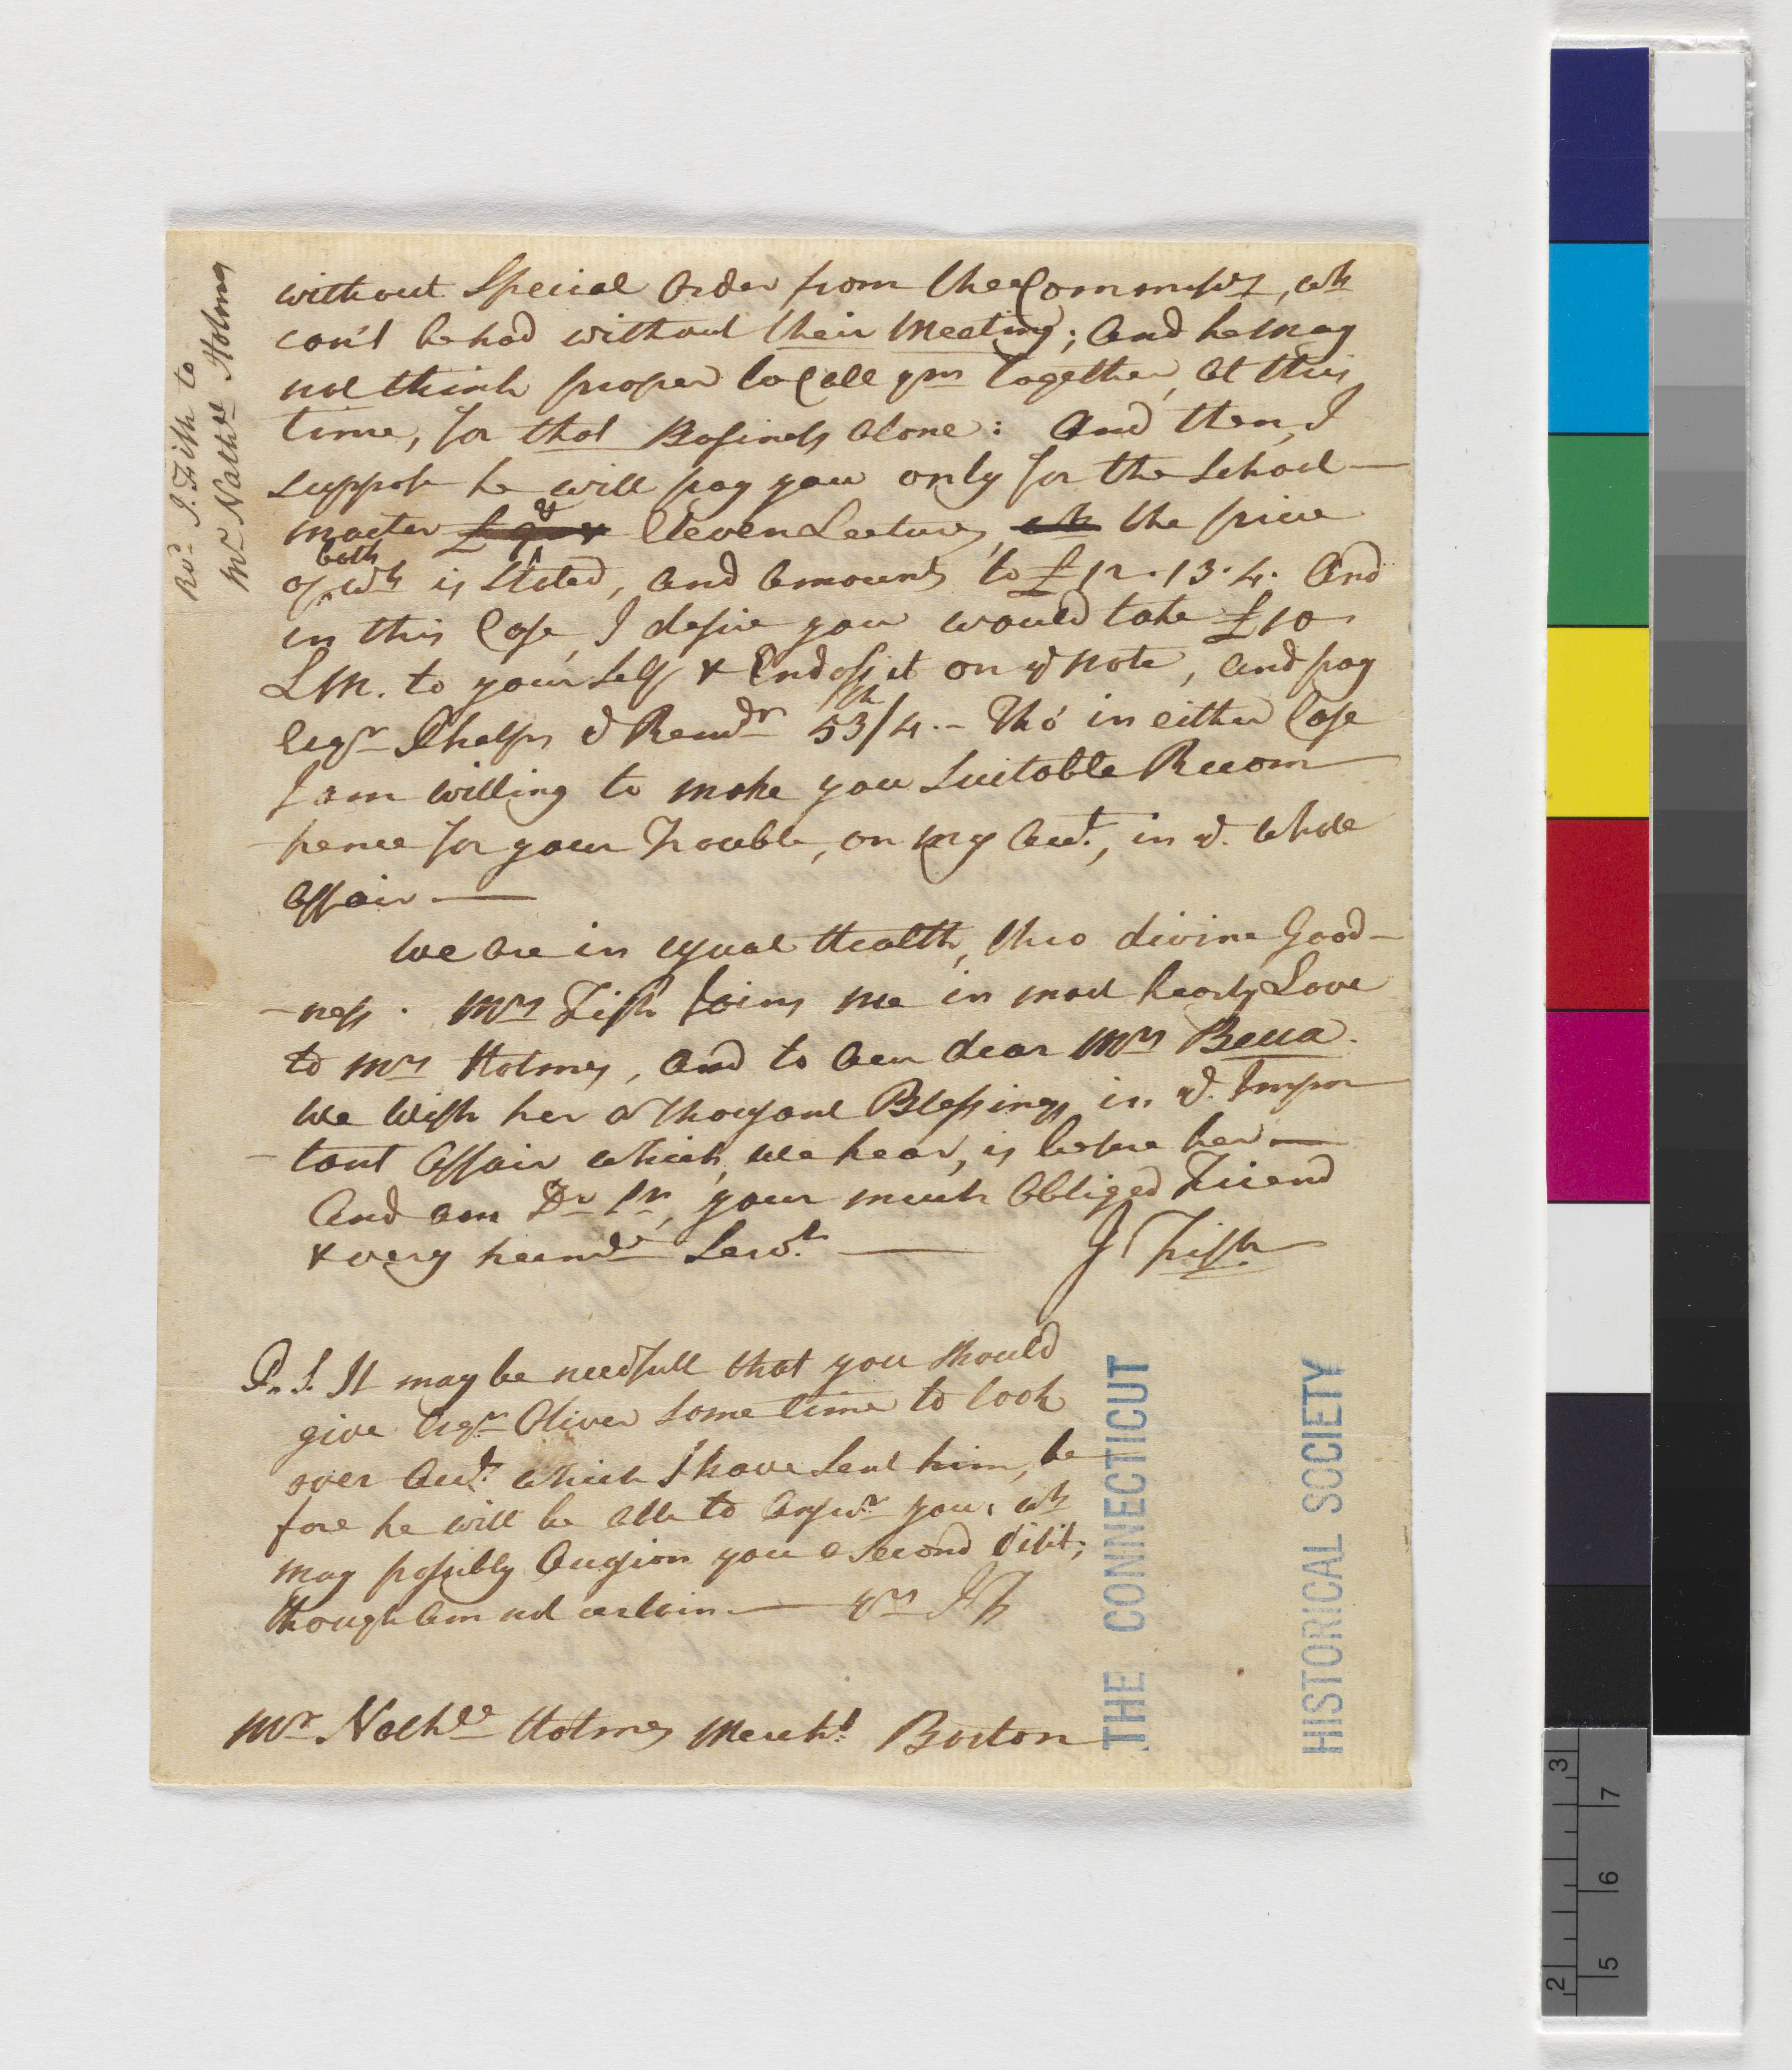 Revd J. Fish to
Mr Nathll Holmes
without Special Order from the Commissrs, wh
can't be had without their Meeting; And he may
not think proper to Call ym together, at this
time, for that Business alone: And then, I
suppose he will pay you only for the School-
master & Eleven Lectures, wh the price
of both wh is Stated, and amounts to £12.13.4. And
in this Case, I desire you would take £10
LM. to your Self & Endoss it on ye Note, and pay
Esqr Phelps ye Remdr 53/4.- Tho' in either Case
I am willing to make you Suitable Recom
pence for your Trouble, on my Acct., in ye. whole
Affair —
We are in usual Health, thro divine Good-
-ness. Mrs Fish Joins me in most hearty Love
to Mrs Holmes, And to our dear Mrs Becca.
We Wish her a thousand Blessings, in ye. Impor
-tant Affair which, we hear, is before her —
And am Dr Sr, your much Obliged Friend
& very humle Servt. — J Fish
P.S. It may be needfull that you should
give Esqr Oliver some time to look
over Acct. which I have Sent him, be
fore he will be able to Answr you, wh
may possibly Occasion you a Second Visit;
though am not certain — yrs JF
Mr Nathll Holmes Mercht. Boston
THE CONNECTICUT
HISTORICAL SOCIETY
3
2
7
6
5